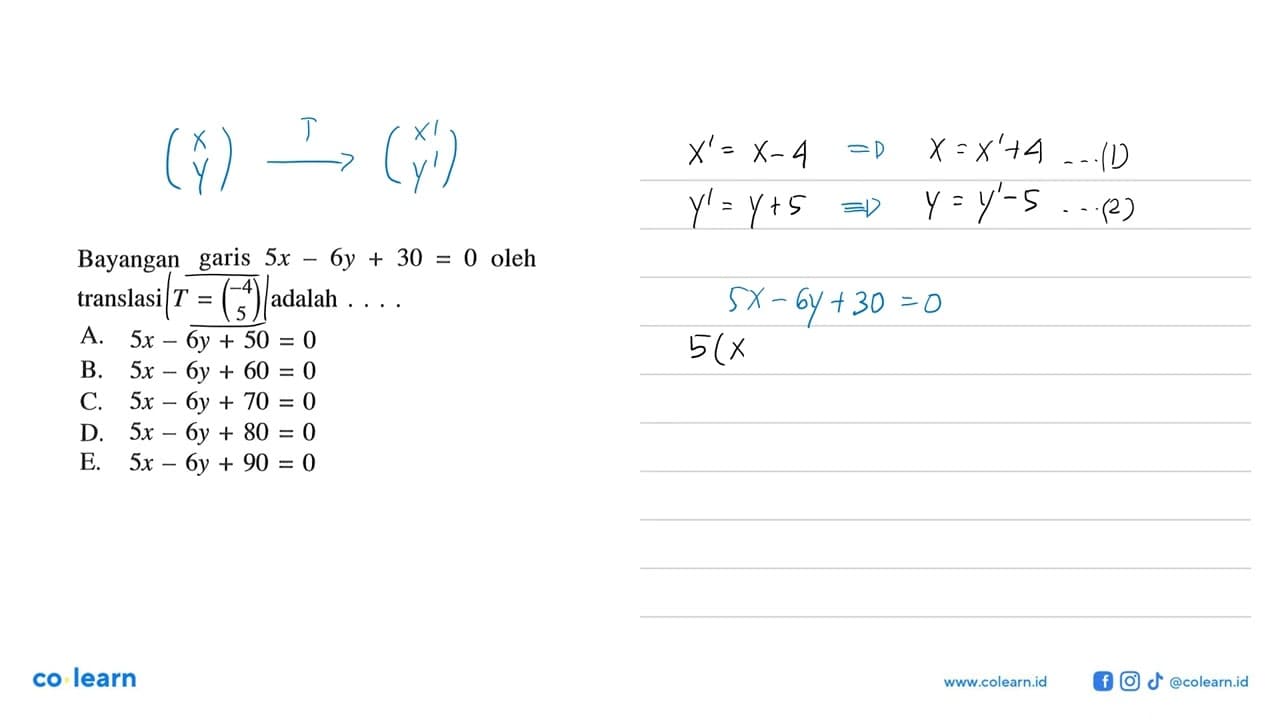 (x y) T → (x' y')
Bayangan garis 5x − 6y + 30 = 0 oleh
translasi T = (−4 5) adalah . . . .
A. 5x − 6y + 50 = 0
B. 5x − 6y + 60 = 0
C. 5x − 6y + 70 = 0
D. 5x − 6y + 80 = 0
E. 5x − 6y + 90 = 0
x' = x − 4 ⇒ x = x' + 4 ...(1)
y' = y + 5 ⇒ y = y' − 5 ...(2)
5x − 6y + 30 = 0
5(x
co learn
www.colearn.id
@colearn.id